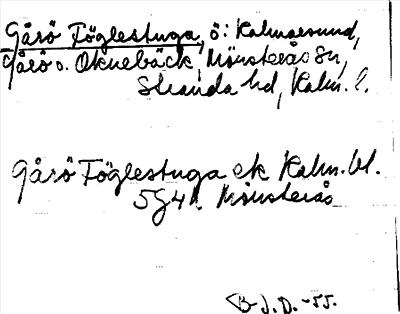 Gårö Föglestuga, ö: Kalmarsund,
Gårö o. Oknebäck, Mönsterås Sn,
Stranda hd, Kalm. l.
Gårö Föglestuga ek Kalm. bl.
5g4 Mönsterås
B J. D. -55.